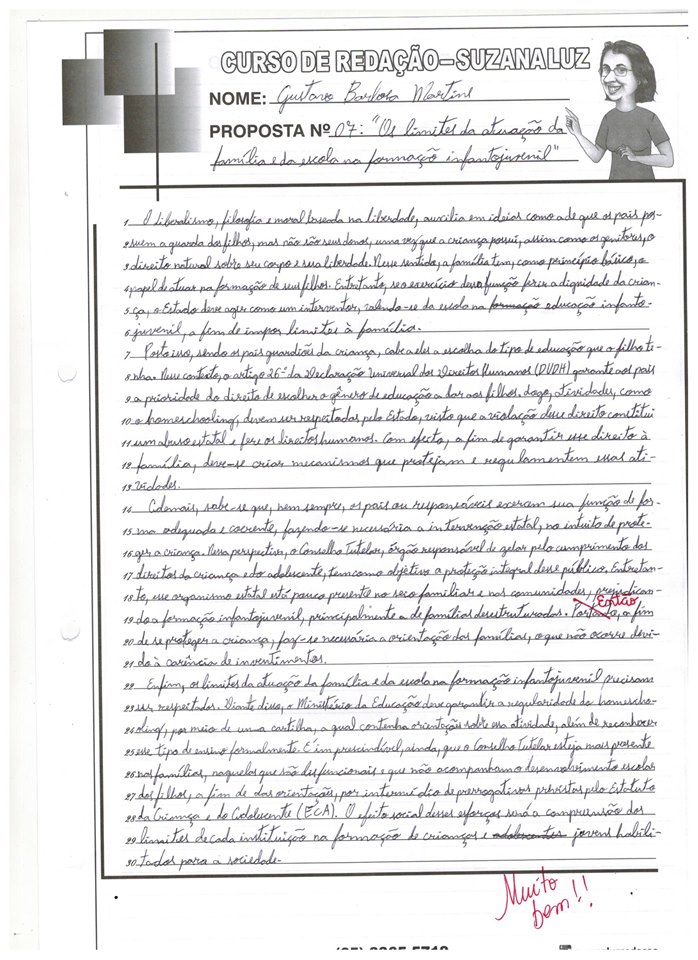 CURSO DE REDAÇÃO–SUZANA LUZ
NOME: Gustavo Barbosa Martins
PROPOSTA Nº 07: "Os limites da atuação da
família e da escola na formação infantojuvenil"
1 O liberalismo, filosofia e moral baseada na liberdade, auxilia em ideias como a de que os pais pos-
2 suem a guarda dos filhos, mas não são seus donos, uma vez que a criança possui, assim como os genitores, o
3 direito natural sobre seu corpo e sua liberdade. Nesse sentido, a família tem, como princípio básico, o
4 papel de atuar na formação de seus filhos. Entretanto, se o exercício dessa função ferir a dignidade da crian-
5 ça, o Estado deve agir como um interventor, valendo-se da escola na formação educação infanto-
6 juvenil, a fim de impor limites à família.
7 Posto isso, sendo os pais guardiões da criança, cabe a eles a escolha do tipo de educação que o filho te-
8 nha. Nesse contexto, o artigo 26º da Declaração Universal dos Direitos Humanos (DUDH) garante aos pais
9 a prioridade do direito de escolher o gênero de educação a dar aos filhos. Logo, atividades, como
10 o homeschooling, devem ser respeitadas pelo Estado, visto que a violação desse direito constitui
11 um abuso estatal e fere os direitos humanos. Com efeito, a fim de garantir esse direito à
12 família, deve-se criar mecanismos que protejam e regulamentem essas ati-
13 vidades.
14 Ademais, sabe-se que, nem sempre, os pais ou responsáveis exercem sua função de for-
15 ma adequada e coerente, fazendo-se necessária a intervenção estatal, no intuito de prote-
16 ger a criança. Nessa perspectiva, o Conselho Tutelar, órgão responsável de zelar pelo cumprimento dos
17 direitos da criança e do adolescente, tem como objetivo a proteção integral desse público. Entretan-
18 to, esse organismo estatal está pouco presente no seio familiar e nas comunidades, prejudican-
19 do a formação infantojuvenil, principalmente a de famílias desestruturadas. Portanto, Então a fim
20 de se proteger a criança, faz-se necessária a orientação das famílias, o que não ocorre devi-
21 do à carência de investimentos.
22 Enfim, os limites da atuação da família e da escola na formação infantojuvenil precisam
23 ser respeitados. Diante disso, o Ministério da Educação deve garantir a regularidade do homescho-
24 oling, por meio de uma cartilha, a qual contenha orientações sobre essa atividade, além de reconhecer
25 esse tipo de ensino formalmente. É imprescindível, ainda, que o Conselho Tutelar esteja mais presente
26 nas famílias, naquelas que são disfuncionais e que não acompanham o desenvolvimento escolar
27 dos filhos, a fim de dar orientações, por intermédio de prerrogativas previstas pelo Estatuto
28 da Criança e do Adolescente (ECA). O efeito social desses esforços será a compreensão dos
29 limites de cada instituição na formação de crianças e adolescentes jovens habili-
30 tados para a sociedade.
Muito
bem!!